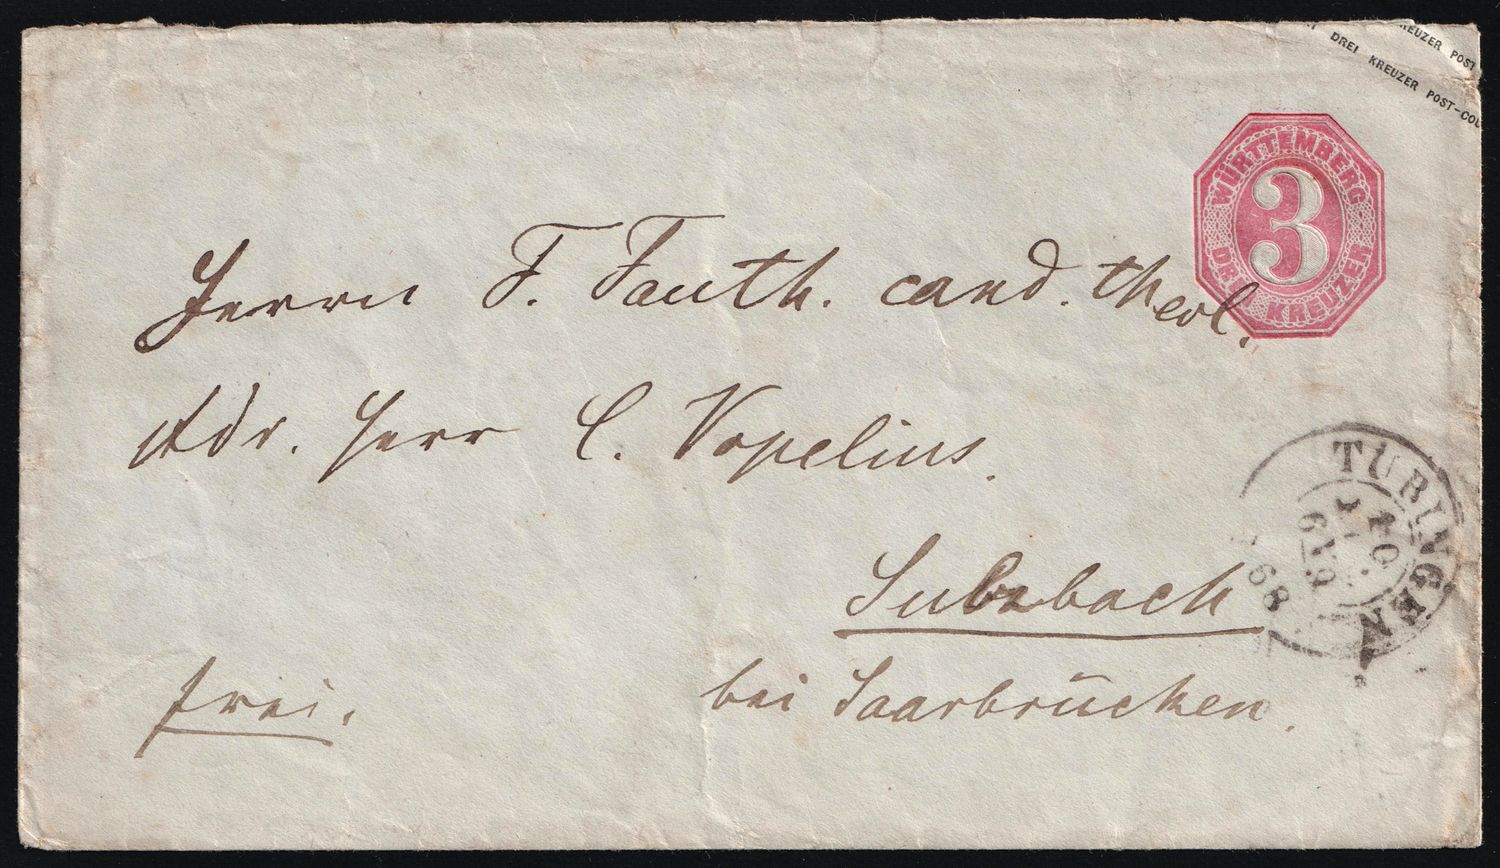 REUZER POST
DREI KREUZER POST-COU
WÜRTTEMBERG
3
DREI KREUZER
Herrn F. Fauth. cand. theol.
Adr. Herr C. Vopelius.
Sulzbach
bei Saarbrücken.
frei.
TÜBINGEN
68